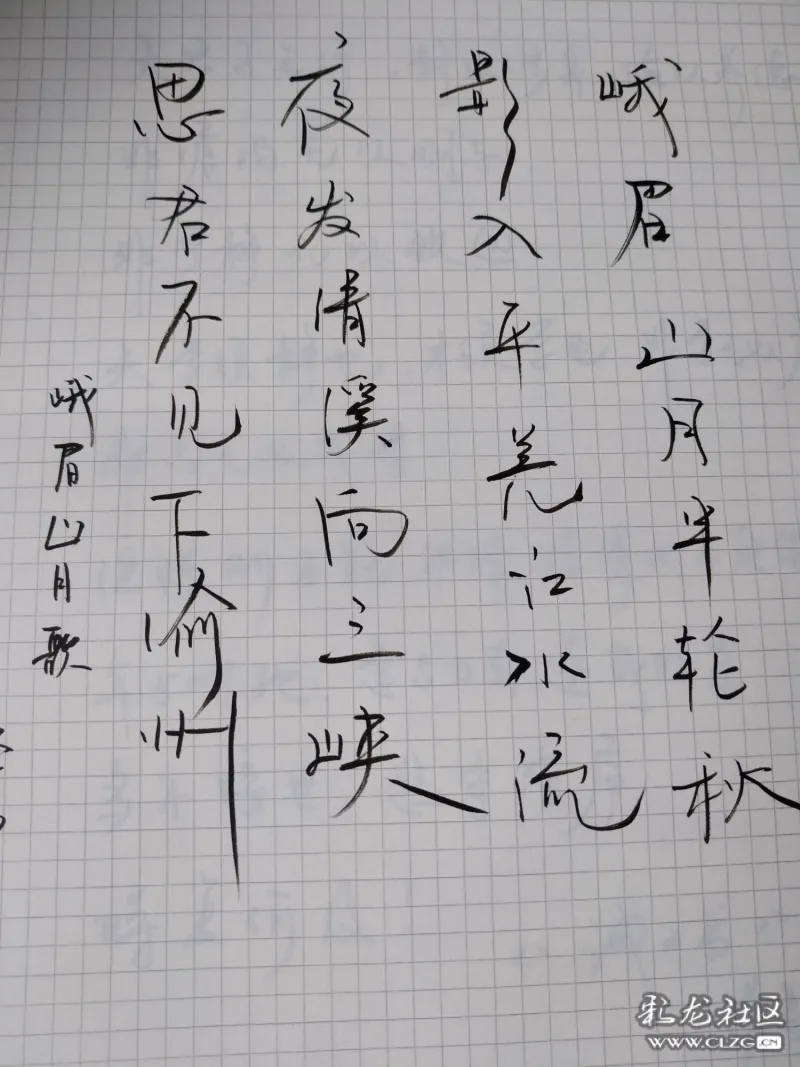 峨眉山月半轮秋
影入平羌江水流
夜发清溪向三峡
思君不见下渝州
峨眉山月歌
彩龙社区
WWW.CLZG.CN